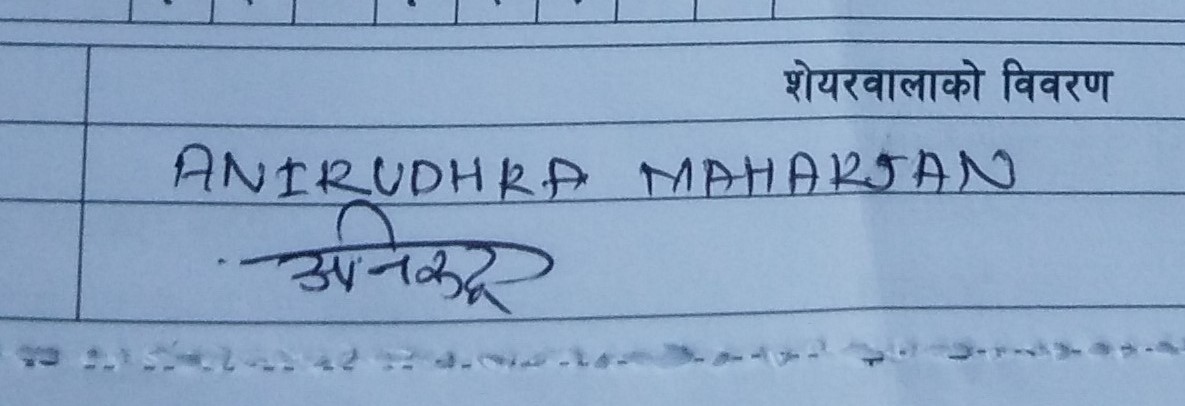 शेयरवालाको विवरण
ANIRUDHRA MAHARJAN
अनिरुद्र